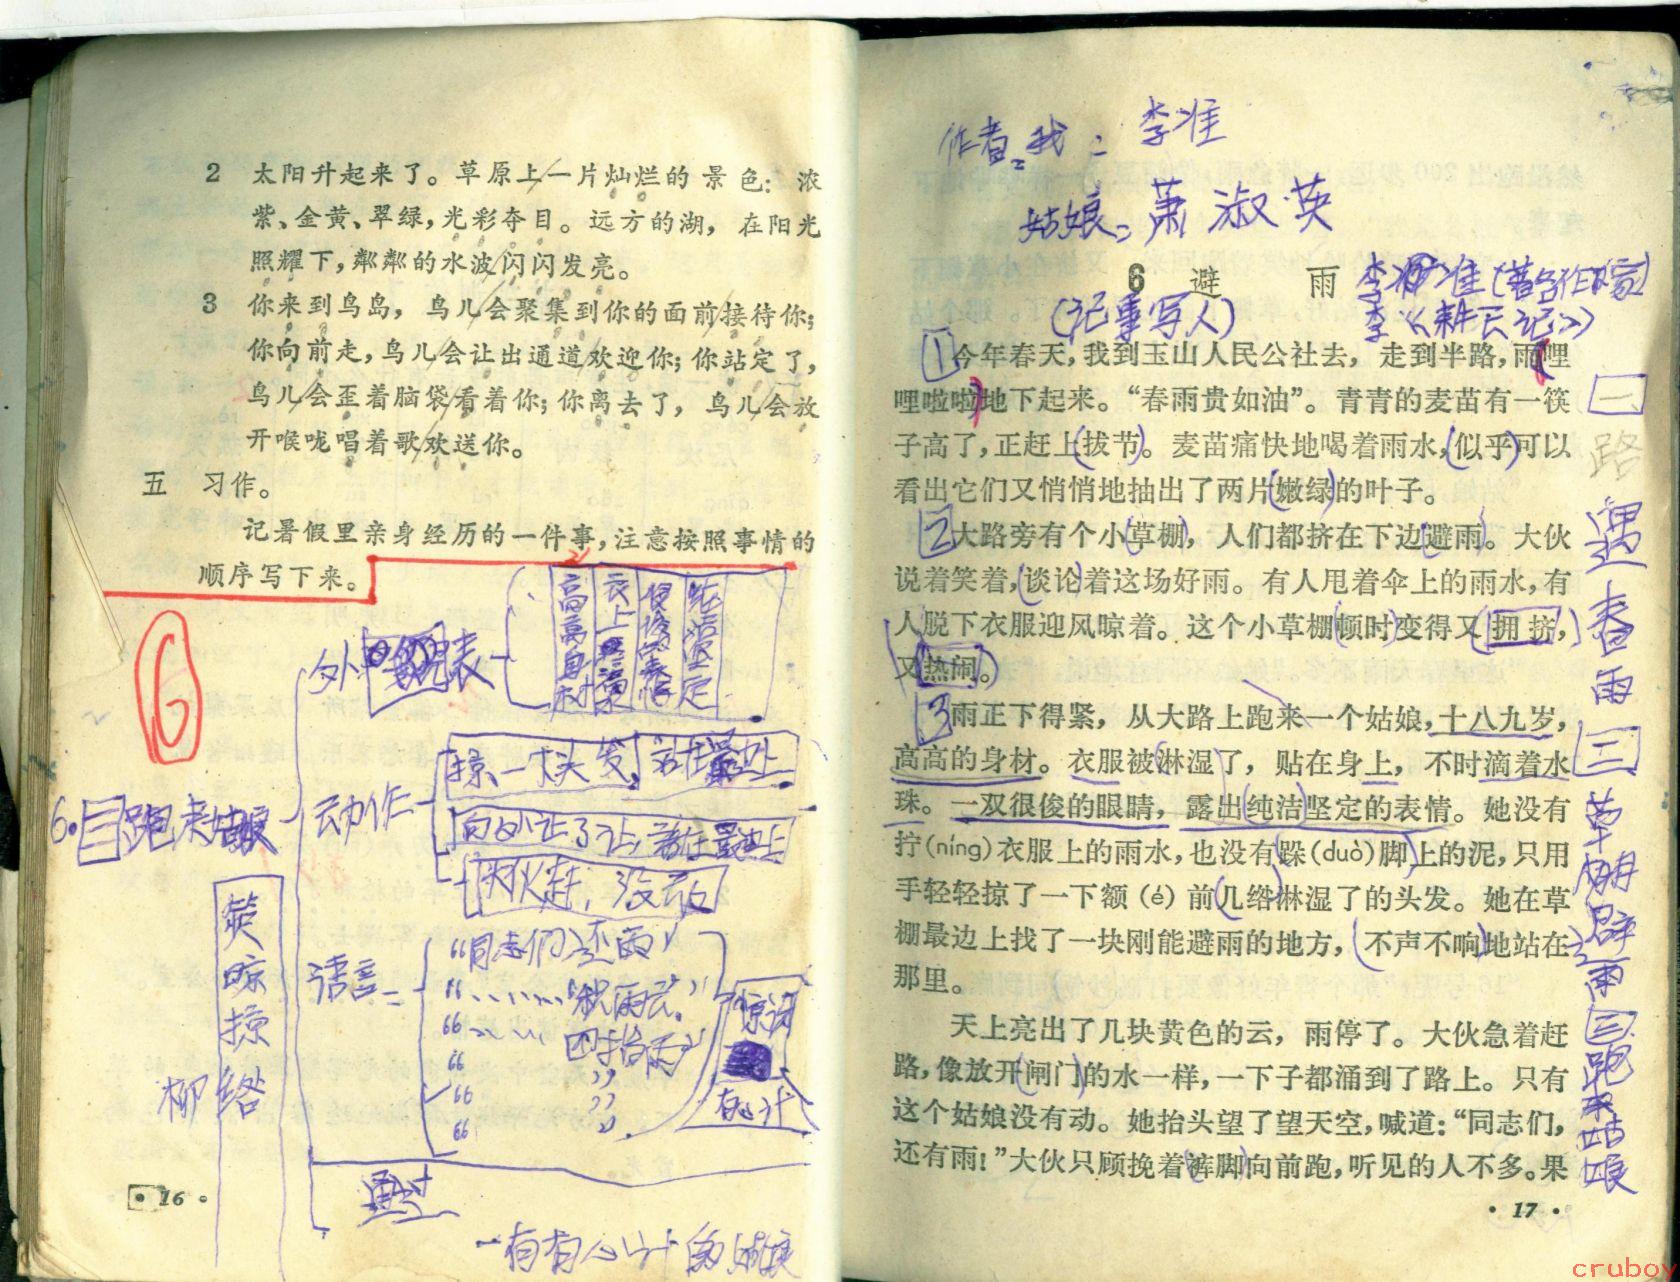 2 太阳升起来了。草原上一片灿烂的景色：浓
紫、金黄、翠绿，光彩夺目。远方的湖，在阳光
照耀下，粼粼的水波闪闪发亮。
3 你来到鸟岛，鸟儿会聚集到你的面前接待你；
你向前走，鸟儿会让出通道欢迎你；你站定了，
鸟儿会歪着脑袋看着你；你离去了，鸟儿会放
开喉咙唱着歌欢送你。
五 习作。
记暑假里亲身经历的一件事，注意按照事情的
顺序写下来。
6
外表
高高身材
衣上
纯洁坚定
6. 三跑来姑娘
动作
掠一下头发，站在最边上
语言
“同志们，还有雨”
有心计
晾
掠
柳 绺
一有有心计的姑娘
• 16 •
作者：我：李准
姑娘：萧淑英
6 避 雨
李准（著名作家）
（记事写人）
李《耕云记》
1 今年春天，我到玉山人民公社去，走到半路，雨哩
哩啦啦地下起来。“春雨贵如油”。青青的麦苗有一筷
子高了，正赶上拔节。麦苗痛快地喝着雨水，似乎可以
看出它们又悄悄地抽出了两片嫩绿的叶子。
2 大路旁有个小草棚，人们都挤在下边避雨。大伙
说着笑着，谈论着这场好雨。有人甩着伞上的雨水，有
人脱下衣服迎风晾着。这个小草棚顿时变得又拥挤，
又热闹。
3 雨正下得紧，从大路上跑来一个姑娘，十八九岁，
高高的身材。衣服被淋湿了，贴在身上，不时滴着水
珠。一双很俊的眼睛，露出纯洁坚定的表情。她没有
拧(níng)衣服上的雨水，也没有跺(duò)脚上的泥，只用
手轻轻掠了一下额(é)前几绺淋湿了的头发。她在草
棚最边上找了一块刚能避雨的地方，不声不响地站在
那里。
天上亮出了几块黄色的云，雨停了。大伙急着赶
路，像放开闸门的水一样，一下子都涌到了路上。只有
这个姑娘没有动。她抬头望了望天空，喊道：“同志们，
还有雨！”大伙只顾挽着裤脚向前跑，听见的人不多。果
• 17 •
一、路遇春雨
二 草棚避雨
三 跑来姑娘
cruboy